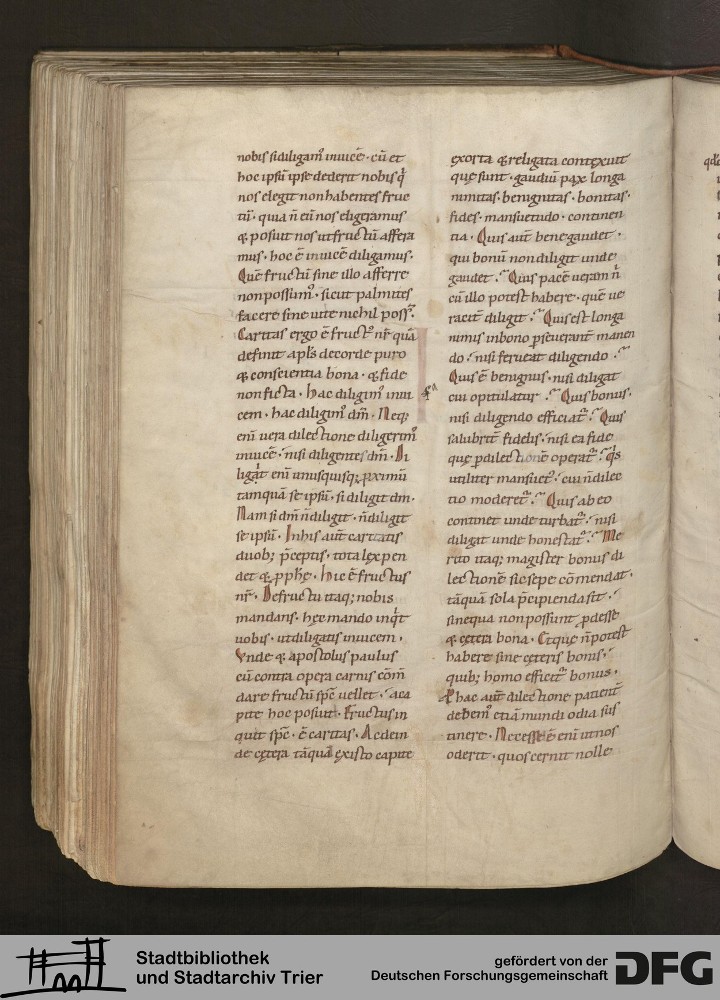 nobis si diligam᷒ inuicē · cū et
hoc ipsū ipse dederit nobis q̇
nos elegit non habentes fruc
tū · quia n̄ eū nos eligeramus
& posuit nos ut fructū affera
mus · hoc ē inuicē diligamus ·
Quē fructū sine illo afferre
non possum᷒ · sicut palmites
facere sine uite nichil poss̄ ·
Caritas ergo ē fruct᷒ nr̄ quā
definit apl̄s de corde puro
& conscientia bona · & fide
non ficta · Hac diligim᷒ inui
cem · hac diligim᷒ dm̄ · Neq;
enī uera dilectione diligerem᷒
inuicē · nisi diligentes dm̄ · Di
ligit enī unusquisq; pximū
tamquā se ipsū · si diligit dm̄ ·
Nam si dm̄ n̄ diligit · n̄ diligit
se ipsū · In his aut̄ caritatis
duob; p̄ceptis · tota lex pen
det & pph̄ę · hic ē fructus
nr̄ · De fructu itaq; nobis
mandans · hęc mando inq̇t
uobis · ut diligatis inuicem ·
Vnde & apostolus paulus
cū contra opera carnis cōm̄
dare fructū sp̄c uellet · a ca
pite hoc posuit · Fructus in
quit sp̄c · ē caritas · Ac dein
de cętera tāquā ex isto capite
exorta & religata contexuit
quę sunt · gaudiū pax longa
nimitas · benignitas · bonitas ·
fides · mansuetudo · continen
tia · Quis aut̄ bene gaudet ·
qui bonū non diligit unde
gaudet · Quis pacē ueram n̄
cū illo potest habere · quē ue
racit̄ diligit · Quis est longa
nimis in bono pseuerant̄ manen
do · nisi ferueat diligendo ·
Quis ē benignus · nisi diligat
cui opitulatur · Quis bonus ·
nisi diligendo efficiat̄ · Quis
salubrit̄ fidelis · nisi ea fide
quę p dilectionē operat̄ · q̇s
utiliter mansuet᷒ · cui n̄ dilec
tio moderet̄ · Quis ab eo
continet unde turbat̄ · nisi
diligat unde honestat̄ · Me
rito itaq; magister bonus di
lectionē sic sepe cōmendat ·
tāquā sola p̄cipienda sit ·
sine qua non possunt pdesse
& cętera bona · Et que n̄ potest
habere sine cęteris bonis ·
quib; homo efficit̄ bonus ·
P hac aut̄ dilectione patient̄
debem᷒ etiā mundi odia sus
tinere · Necesse ē enī ut nos
oderit · quos cernit nolle
Stadtbibliothek
und Stadtarchiv Trier
gefördert von der
Deutschen Forschungsgemeinschaft
DFG